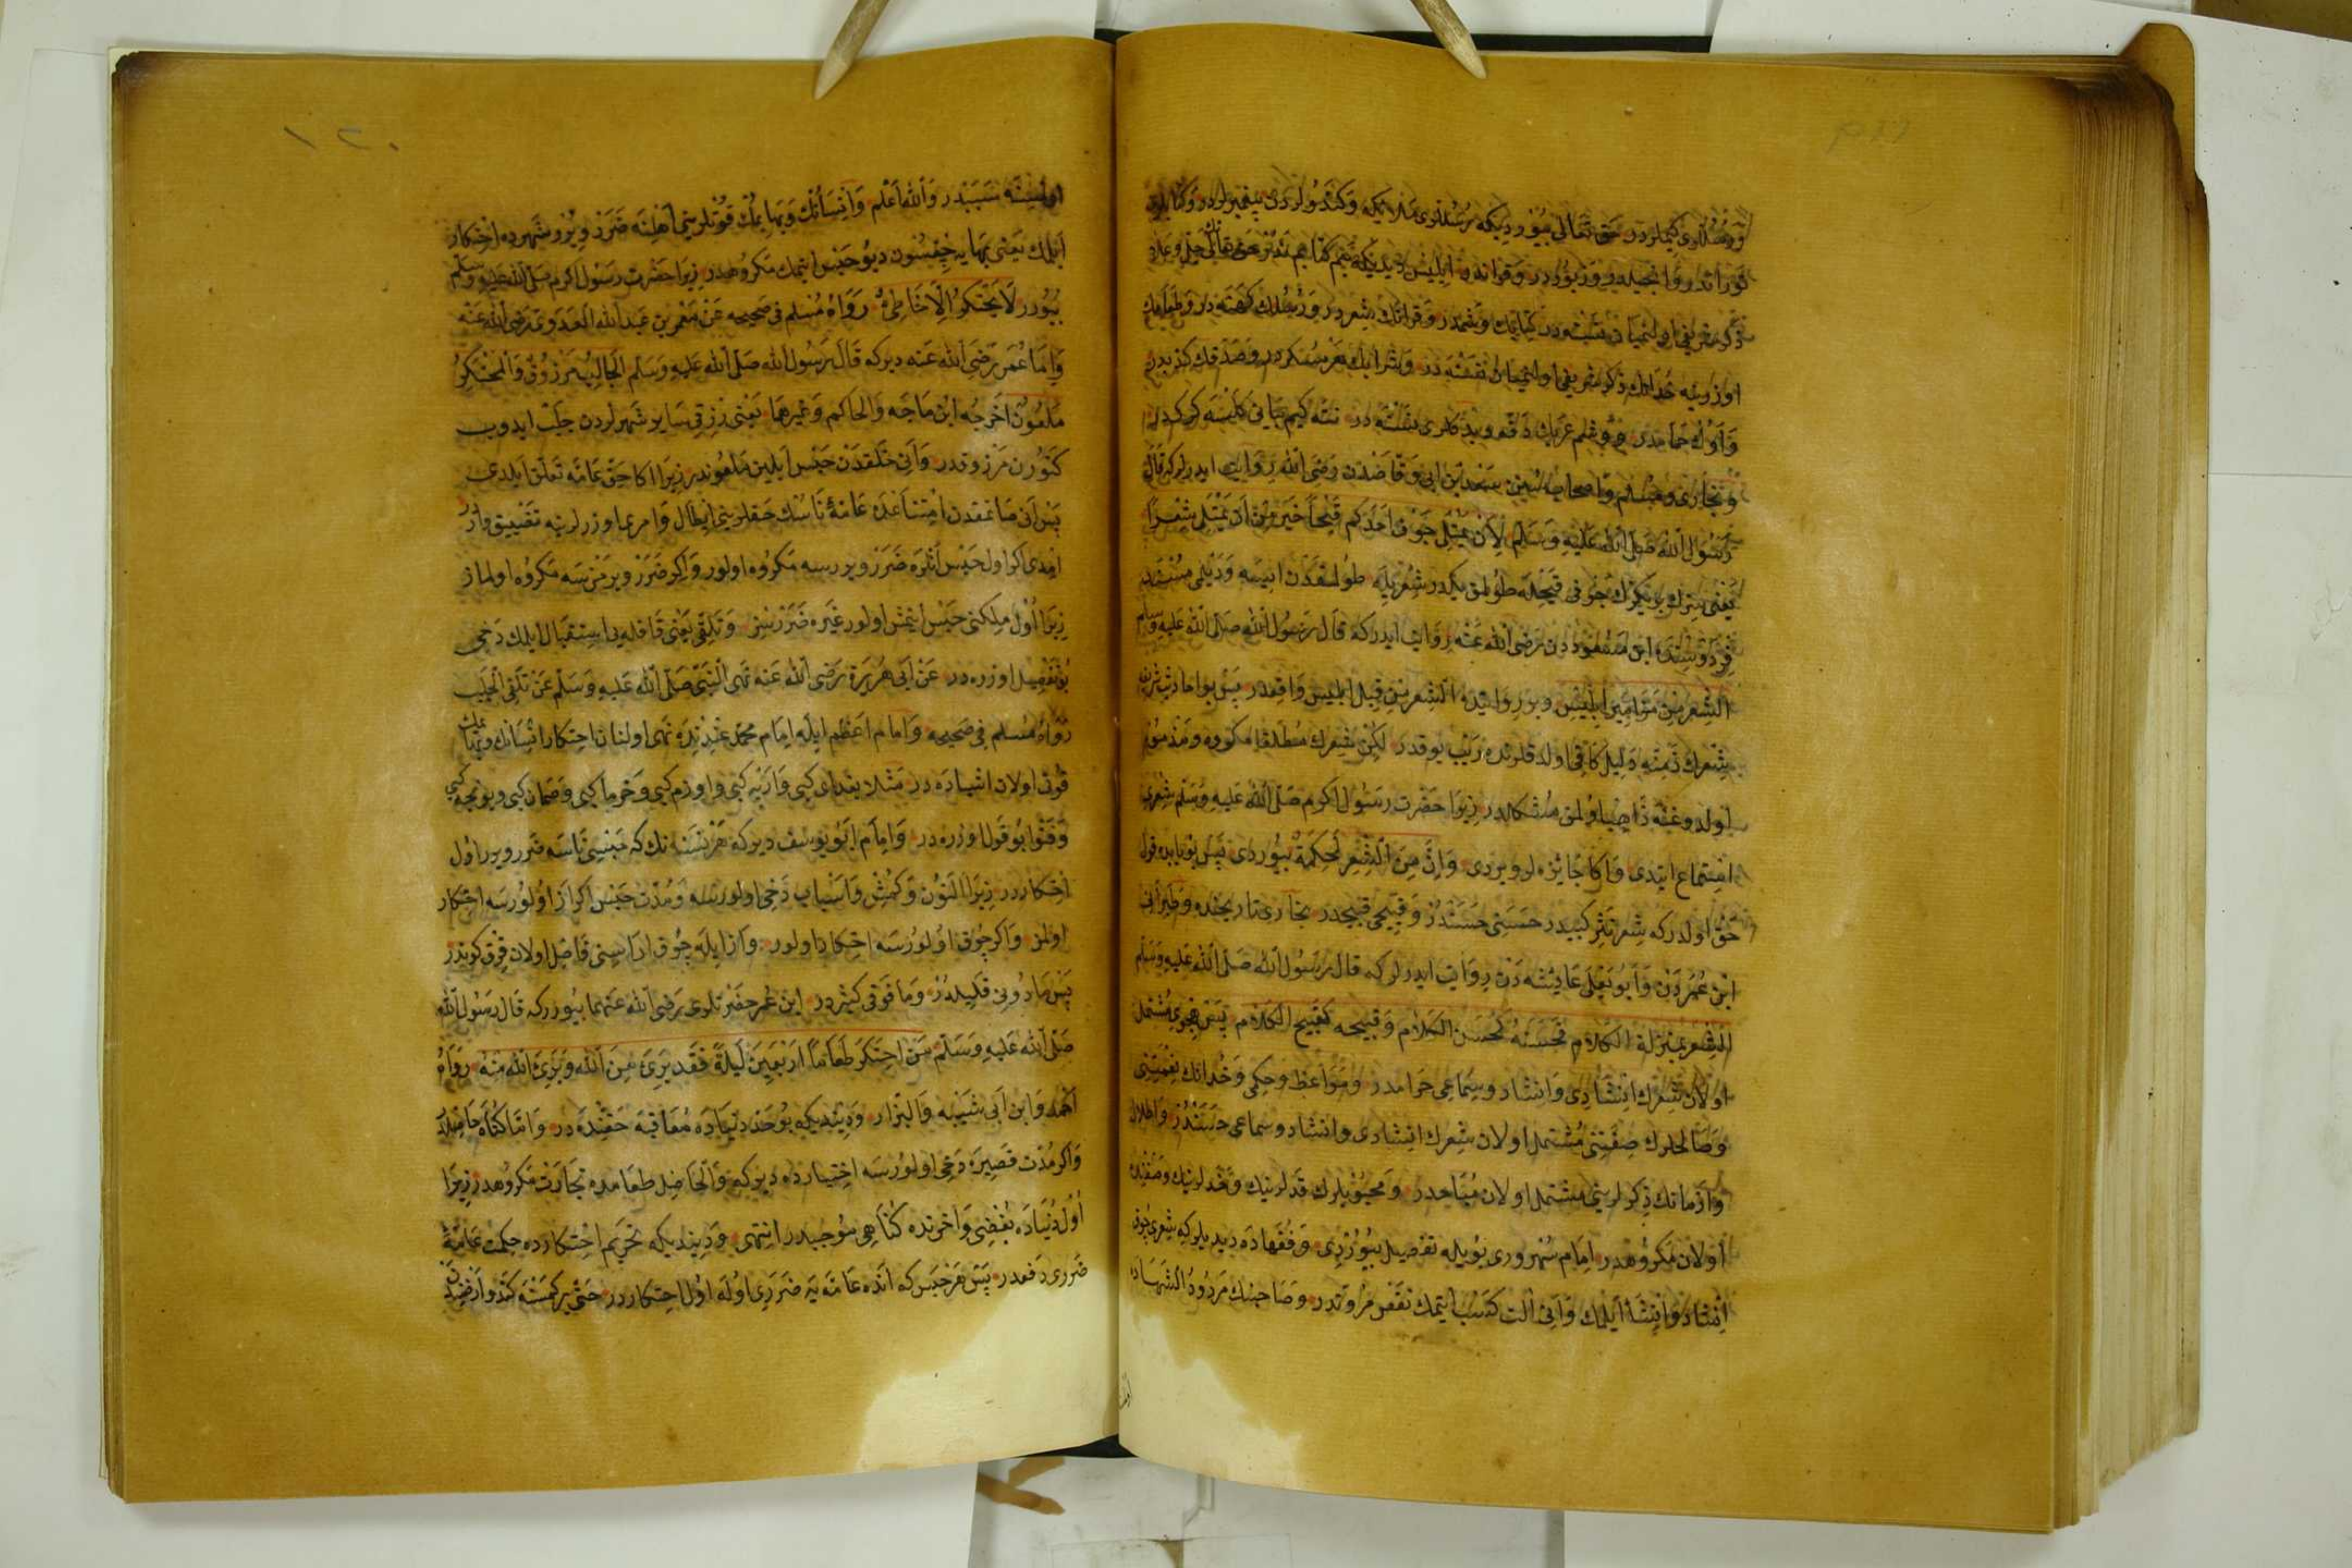 ورسللری کیملردر حق تعالی بیوردیکه رسللری ملائکه وکندولردن پیغمبرلردر وکتابلری
توراتدر وانجیلدر وزبوردر وقرآندر ابلیس دیدیکه بنم کتابم ندر حق تعالی
ذکر شریفی اولنمیان کتابک وشمدر وقرآنک شعردر ورسللرک کهنه در وطعامک
اوزرینه خدانک ذکر شریفی اولنمیان نسنه در وشرابک هر مسکردر وصدقک کذبدر
وأوک حمامدر
وبخاری ومسلم واصحاب سنن سعد بن ابی وقاصدن رضی الله روایت ایدرلرکه قال
رسول الله صلی الله علیه وسلم لأن یمتلئ جوف احدکم قیحا خیر من ان یمتلئ شعرا
یعنی سزک بریکزک جوفی قیحله طولمق یکدر شعریله طولمقدن ایسه ودیلمی مسند
فردوسنده ابن مسعوددن رضی الله عنه روایت ایدرکه قال رسول الله صلی الله علیه وسلم
الشعر من مزامیر ابلیس وبر روایتده الشعر من قبل ابلیس واقعدر پس بو احادیث شریفه
شعرک ذمنه دلیل کافی اولدقلرنده ریب یوقدر لکن شعرک مطلقا مکروه ومذموم
اولدوغنه ذاهب اولمق مشکلدر زیرا حضرت رسول اکرم صلی الله علیه وسلم شعری
استماع ایتدی واکا جائزه لر ویردی وان من الشعر لحکمة بیوردی پس بو بابده قول
حق اولدرکه شعر نثر کبیدر حسنی حسندر وقبیحی قبیحدر بخاری تاریخنده وطبرانی
ابن عمردن وابو یعلی عائشه دن روایت ایدرلرکه قال رسول الله صلی الله علیه وسلم
الشعر بمنزلة الکلام فحسنه کحسن الکلام وقبیحه کقبیح الکلام پس هجوی مشتمل
اولان شعرک انشادی وانشاد وسماعی حرامدر ومواعظ وحکمی وخدانک نعمتنی
وصالحلرک صفتنی مشتمل اولان شعرک انشادی وانشاد وسماعی حسندر واطلال
وازمانک ذکرلرینی مشتمل اولان مباحدر ومحبوبلرک قدلرینک وخدلرینک وصفنده
اولان مکروهدر امام سهروردی بویله تفصیل بیوردی وفقهاده دیدیلرکه شعری چوق
انشاد وانشا ایلمک وآنی آلت کسب ایتمک نقض مروتدر وصاحبنک مردود الشهاده
اولمسنه سببدر والله اعلم وانسانک وبهایمک قوتلرینی اهلنه ضرر ویرر شهرده احتکار
ایلمک یعنی بهایه چقسون دیو حبس ایتمک مکروهدر زیرا حضرت رسول اکرم صلی الله علیه وسلم
بیورر لا یحتکر الا خاطئ رواه مسلم فی صحیحه عن معمر بن عبد الله العدوی رضی الله عنه
واما عمر رضی الله عنه دیرکه قال رسول الله صلی الله علیه وسلم الجالب مرزوق والمحتکر
ملعون اخرجه ابن ماجه والحاکم وغیرهما یعنی رزقی سایر شهرلردن جلب ایدوب
کتورن مرزوقدر وآنی خلقدن حبس ایلین ملعوندر زیرا اکا حق عامه تعلق ایلدی
پس آنی صاتمقدن امتناعده عامه ناسک حقلرینی ابطال وامر معاش اوزرلرینه تضییق واردر
امدی اکر اول حبس آنلره ضرر ویررسه مکروه اولور واکر ضرر ویرمزسه مکروه اولماز
زیرا اول ملکنی حبس ایتمش اولور غیره ضررسز وتلقی یعنی قافله یی استقبال ایلمک دخی
بو تفصیل اوزره در عن ابی هریرة رضی الله عنه نهی النبی صلی الله علیه وسلم عن تلقی الجلب
رواه مسلم فی صحیحه وامام اعظم ایله امام محمد عندنده نهی اولنان احتکار انسانک وبهایمک
قوتی اولان اشیاده در مثلا بغدای کبی وارپه کبی واوزم کبی وخرما کبی وصمان کبی ویونجه کبی
وفتوا بو قول اوزره در وامام ابو یوسف دیرکه هر نسنه نک که حبسی ناسه ضرر ویرر اول
احتکاردر زیرا التون وکمش واسباب دخی اولورسه ومدت حبس اکر از اولورسه احتکار
اولمز واکر چوق اولورسه احتکار اولور وازایله چوق اراسنی فاصل اولان قرق کوندر
پس مادونی قلیلدر ومافوقی کثیردر ابن عمر حضرتلری رضی الله عنهما بیوررکه قال رسول الله
صلی الله علیه وسلم من احتکر طعاما اربعین لیلة فقد برئ من الله وبرئ الله منه رواه
احمد وابن ابی شیبه والبزار ودیندیکه بو حد دنیاده معاقبه حقنده در واما کناه حاصلدر
واکر مدت قصیره دخی اولورسه اختیارده دیرکه والحاصل طعامده تجارت مکروهدر زیرا
اول دنیاده بغضی واخرتده کناهی موجبدر انتهی ودیندیکه تحریم احتکارده حکمت عامه
ضرری دفعدر پس هر حبس که آنده عامه یه ضرری اوله اول احتکاردر حتی بر کمسنه کندو ارضنک